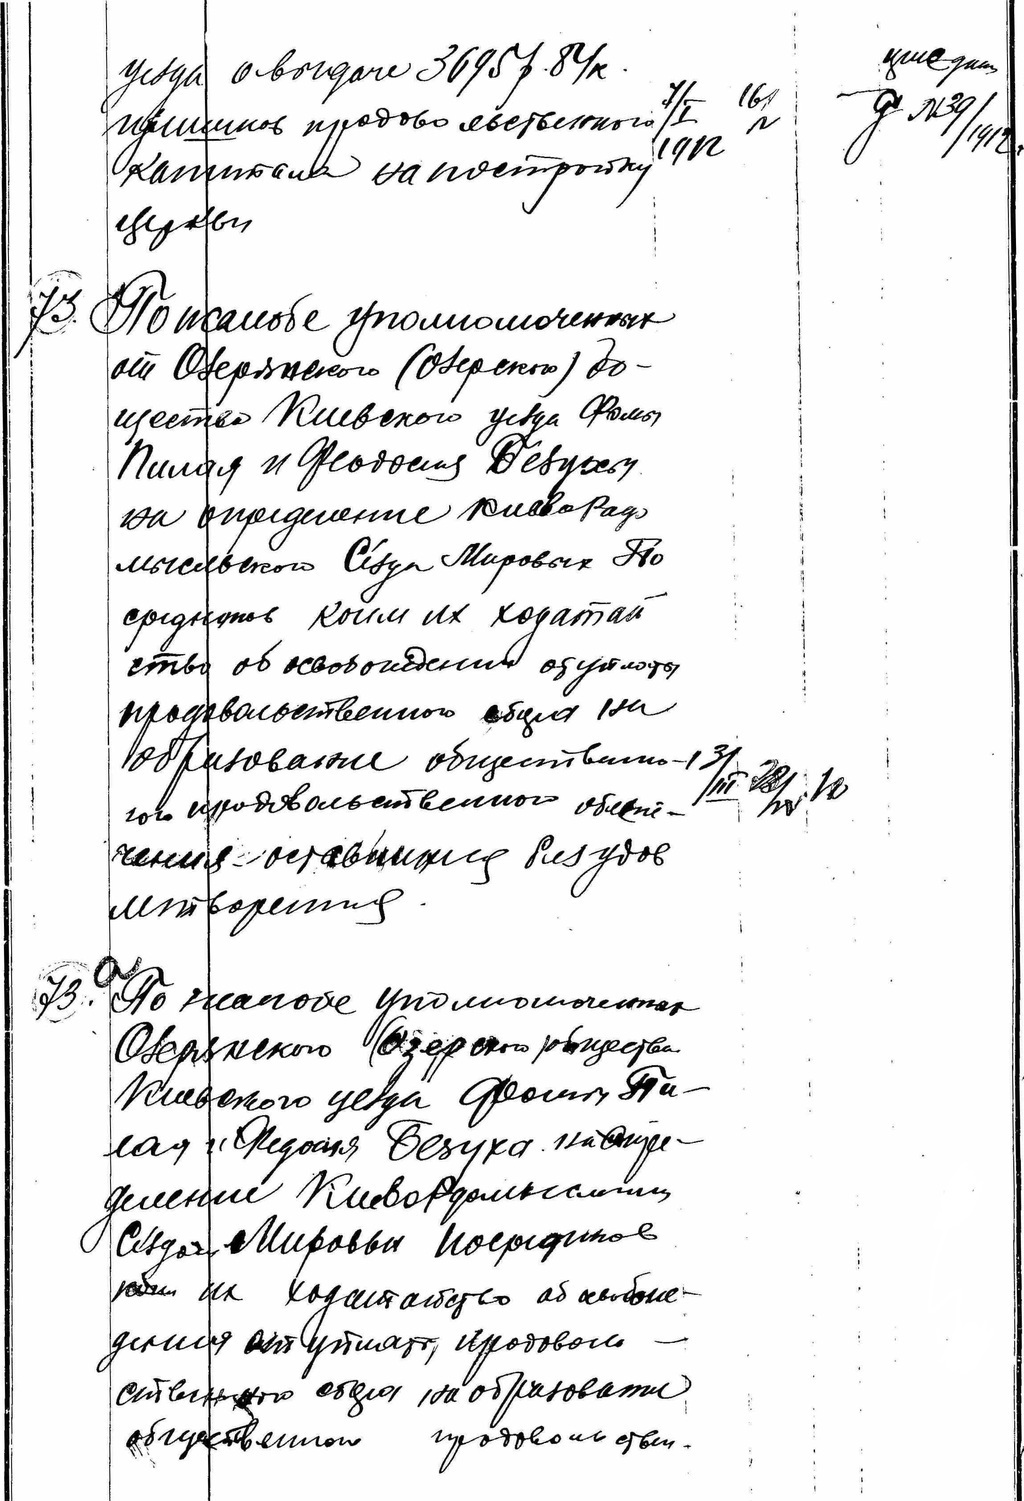 уезда о выдаче 3695 р. 84 к.
продовольственного
капитала на постройку
церкви
7/I 1912
161
д №39/1912
73. По жалобе уполномоченных
от Озерянского (Озерского) об-
щества Киевского уезда Фомы
Пилая и Феодосия Безуха
на определение Киево Радо
мысльского Съезда Мировых По
средников коим их ходатай
ство об освобождении от уплаты
продовольственного сбора на
образование общественно-
го продовольственного обеспе-
чения оставлении без удов
летворения.
13/III 12
73.а По жалобе уполномоченных
Озерянского (Озерского) общества
Киевского уезда Фомы Пи-
лая и Федосия Безуха на опре-
деление Киево Радомысльского
Съезда Мировых Посредников
коим их ходатайство об освобож-
дения от уплаты продоволь-
ственного сбора на образование
общественного продовольствен.